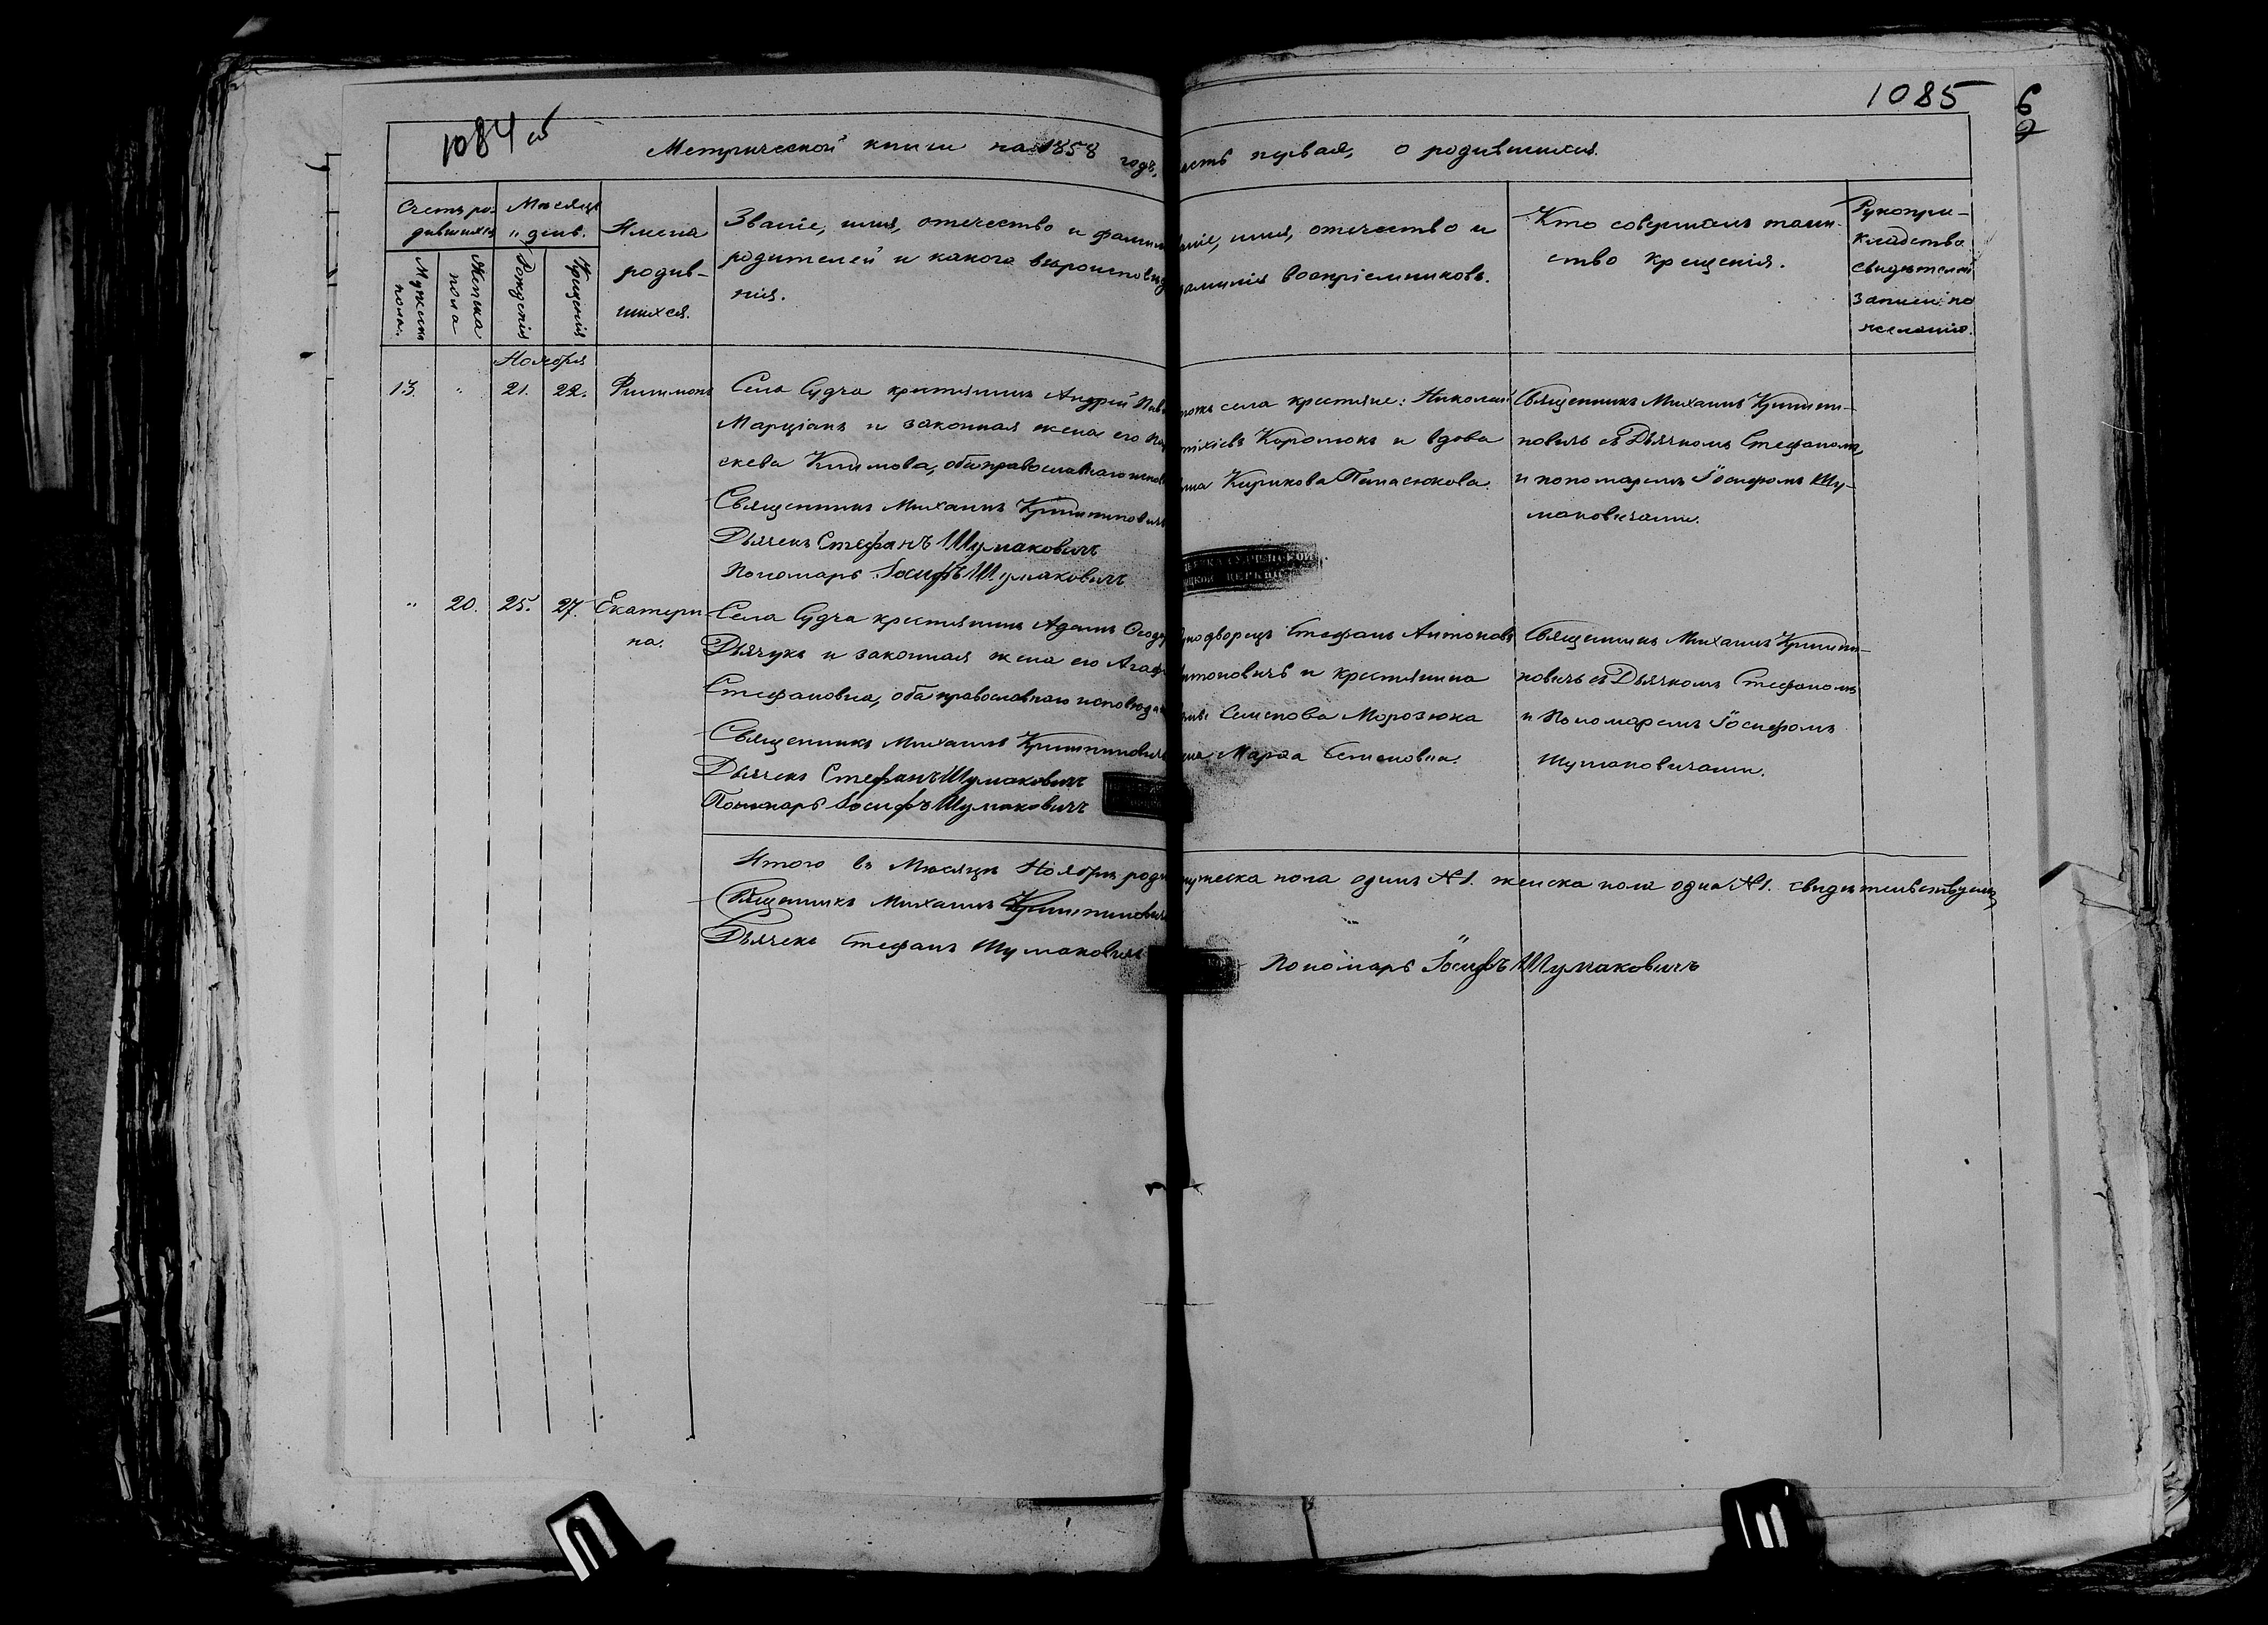 1084 об
1085
Метрической книги на 1858 годъ, часть первая, о родившихся.
Счетъ ро-
дившихся
Мужеска
пола.
Женска
пола
Мѣсяцъ
и день.
Рожденія
Крещенія
Имена
родив-
шихся.
Званіе, имя, отечество и фамил
родителей и какого вѣроисповѣд
нія.
аніе, имя, отечество и
амилія воспріемниковъ.
Кто совершалъ таин-
ство крещенія.
Рукопри-
кладство
свидѣтелей
записи по
желанію.
Ноября
13. " 21. 22. Филимонъ
Села Судча крестьянинъ Андрей Пав
Марціанъ и законная жена его Пар
скева Климова, оба православнаго испов
Священникъ Михаилъ
Дьячекъ Стефанъ Шумаковичъ
Пономарь Іосифъ Шумаковичъ
тожъ села крестьяне: Николай
Коротюкъ и вдова
Кирикова Панасюкова.
Священникъ Михаилъ
новичъ съ Дьячкомъ Стефаномъ
и пономаремъ Іосифомъ Шу-
маковичами.
" 20. 25. 27. Екатери-
на.
Села Судча крестьянинъ Адамъ
Дьячукъ и законная жена его Агаф
Стефановна, оба православнаго исповѣдан
Священникъ Михаилъ
Дьячекъ Стефанъ Шумаковичъ
Пономарь Іосифъ Шумаковичъ
нодворецъ Стефанъ Антоновъ
нтоновичъ и крестьянина
Семенова Морозюка
ена Марѳа
Священникъ Михаилъ
новичъ съ Дьячкомъ Стефаномъ
и Пономаремъ Іосифомъ
Шумаковичами.
Итого въ Мѣсяцѣ Ноябрѣ роди мужеска пола одинъ №1. женска пола одна №1. свидѣтельствуемъ
Священникъ Михаилъ
Дьячекъ Стефанъ Шумаковичъ
Пономарь Іосифъ Шумаковичъ